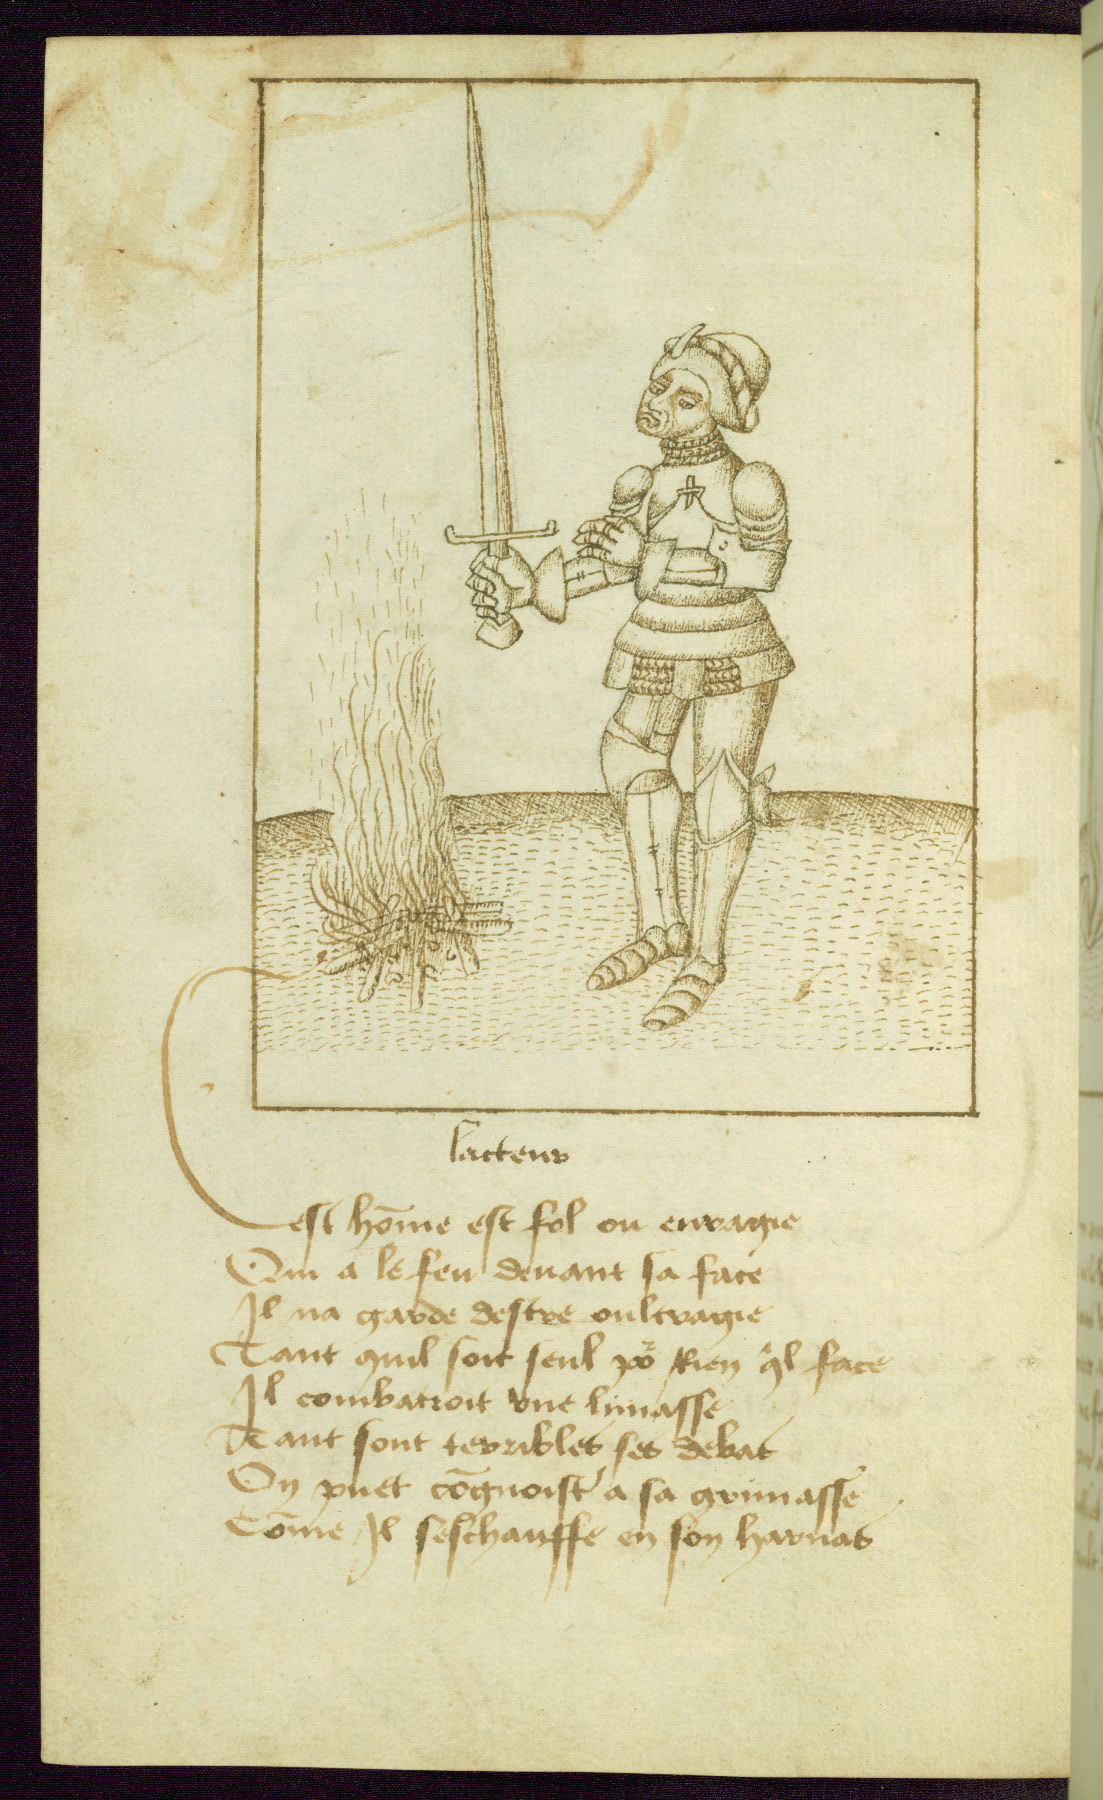 lacteur
Cest hōme est fol ou enragie
Qui a le feu devant sa face
Il na garde destre oultragie
Tant quil soit seul po᷑ Rien q̉l face
Il combatroit vne lymasse
Tant sont terribles ses debas
On puet cōgnoistʼ a sa grimasse
Cōme Il seschauffe en son harnas